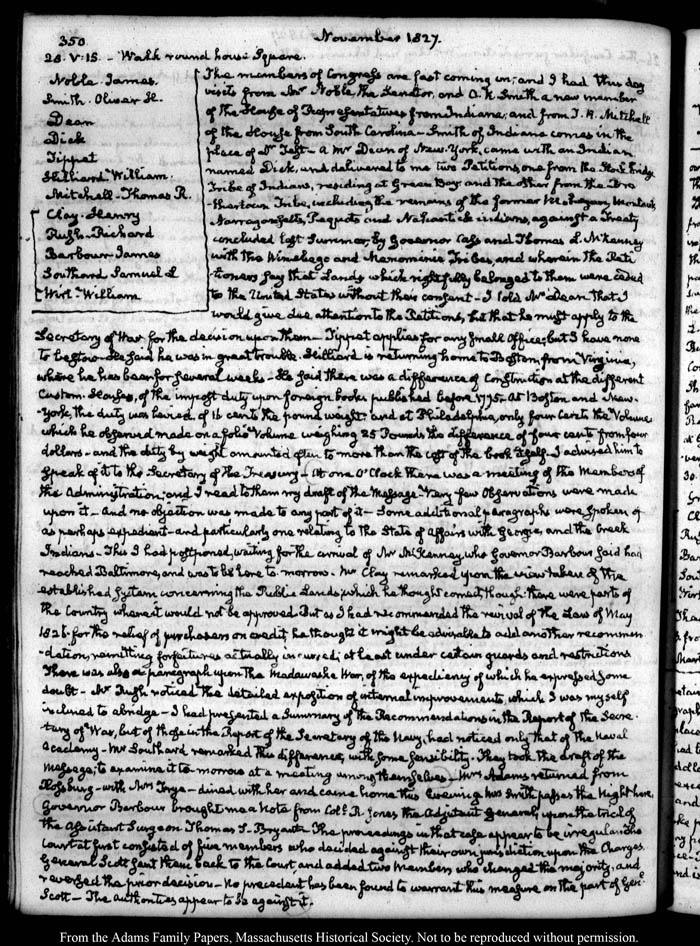 350
November 1827.
28. V. 15. - Walk round house Square.
Noble James.
Smith. Oliver H.
Dean
Dick
Tippet
Hilliard William.
Mitchell - Thomas R.
Clay - Henry
Rush - Richard
Barbour - James
Southard Samuel L
Wirt - William
The members of Congress are fast coming in; and I had this day
visits from Mr Noble, the Senator, and O. H. Smith a new member
of the House of Representatives from Indiana; and from T. R. Mitchell
of the House from South Carolina - Smith of Indiana comes in the
place of Dr Test - A Mr Dean of New-York, came with an Indian
named Dick, and delivered to me two Petitions, one from the Stockbridge
Tribe of Indians, residing at Green Bay; and the other from the Bro
thertown Tribe, including the remains of the former Mohegan, Montauk,
Narragansetts, Pequots and Nahantick indians, against a Treaty
concluded last Summer, by Governor Cass and Thomas L. McKenney
with the Winebago and Menominie Tribes, and wherein the Peti
tioners say that Lands which rightfully belonged to them were ceded
to the United States without their consent - I told Mr Dean that I
would give due attention to the Petitions, but that he must apply to the
Secretary of War for the decision upon them - Tippet applies for any small Office; but I have none
to bestow - He said he was in great trouble. Hilliard is returning home to Boston, from Virginia,
where he has been for several weeks - He said there was a difference of Construction at the different
Custom-Houses, of the impost duty upon foreign books published before 1775. At Boston and New-
York, the duty was levied, of 16 cents the pound weight; and at Philadelphia, only four Cents the Volume
which he observed made on a folio Volume weighing 25 Pounds the difference of four cents from four
dollars - and the duty by weight amounted often to more than the cost of the book itself. I advised him to
speak of it to the Secretary of the Treasury - At one O'Clock there was a meeting of the Members of
the Administration; and I read to them my draft of the Message. Very few Observations were made
upon it - And no objection was made to any part of it - Some additional paragraphs were spoken of
as perhaps expedient - and particularly one relating to the State of affairs with Georgia, and the Creek
Indians - This I had postponed, waiting for the arrival of Mr McKenney, who Governor Barbour said had
reached Baltimore, and was to be here to-morrow. Mr Clay remarked upon the view taken of the
established System concerning the Public Lands, which he thought correct, though there were parts of
the Country where it would not be approved. But as I had recommended the revival of the Law of May
1826. for the relief of purchasers on credit, he thought it might be advisable to add another recommen
-dation, remitting forfeitures actually incurred; at least under certain guards and restrictions
There was also a paragraph upon the Madawaska War, of the expediency of which he expressed some
doubt - Mr Rush noticed the detailed exposition of internal improvements, which I was myself
inclined to abridge - I had presented a Summary of the Recommendations in the Report of the Secre-
tary of War, but of those in the Report of the Secretary of the Navy, had noticed only that of the Naval
Academy - Mr Southard remarked this difference, with some sensibility. They took the draft of the
Message, to examine it to-morrow at a meeting among themselves - Mrs Adams returned from
Rossburg - with Mrs Frye - dined with her and came home this Evening. Mrs Smith passes the Night here.
Governor Barbour brought me a Note from Coll. R. Jones the Adjutant General, upon the trial of
the Assistant Surgeon Thomas I. Bryant. The proceedings in that case appear to be irregular. The
Court at first consisted of five members who decided against their own jurisdiction upon the Charges.
General Scott sent them back to the Court and added two Members who changed the majority, and
reversed the prior decision - No precedent has been found to warrant this measure on the part of Genl.
Scott - The authorities appear to be against it.
From the Adams Family Papers, Massachusetts Historical Society. Not to be reproduced without permission.